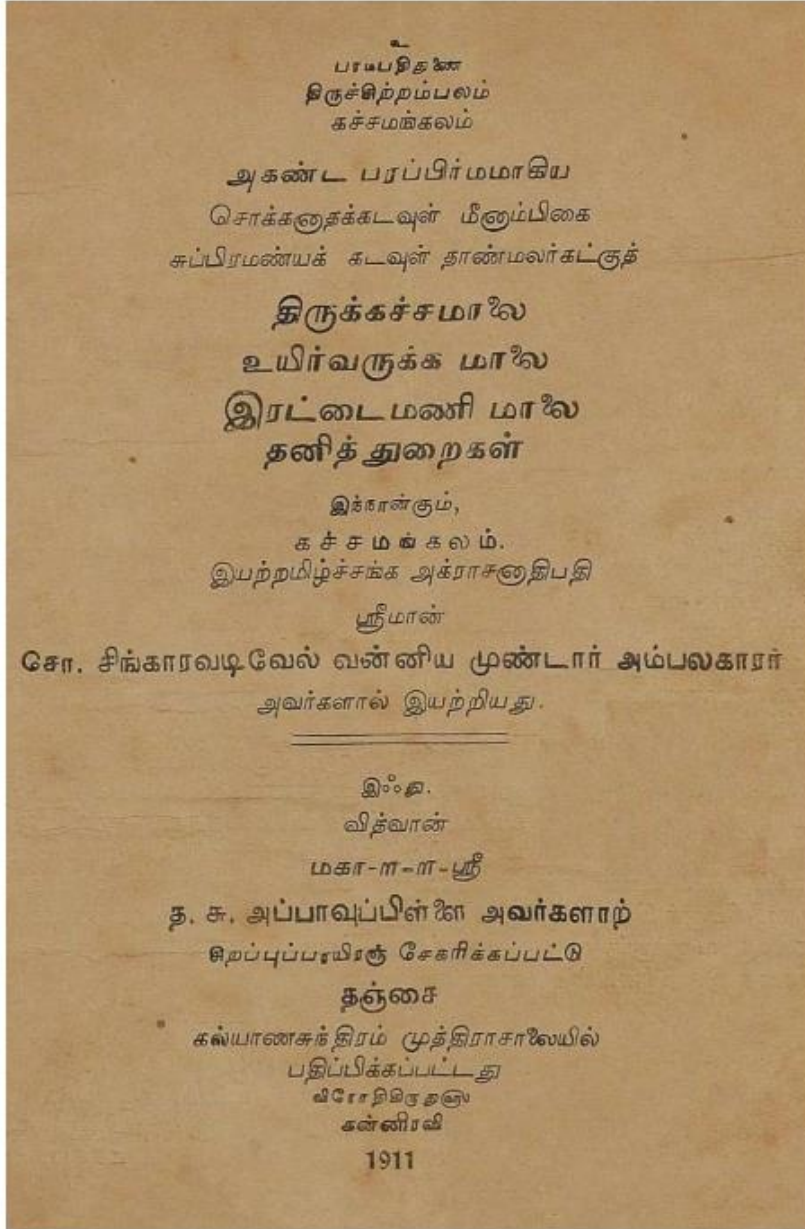 உ
திருச்சிற்றம்பலம்
கச்சமங்கலம்
அகண்ட பரப்பிர்மமாகிய
சொக்கனாதக்கடவுள் மீனாம்பிகை
சுப்பிரமண்யக் கடவுள் தாண்மலர்கட்குத்
திருக்கச்சமாலை
உயிர்வருக்க மாலை
இரட்டைமணி மாலை
தனித்துறைகள்
இந்நான்கும்,
கச்சமங்கலம்.
இயற்றமிழ்ச்சங்க அக்ராசனாதிபதி
ஸ்ரீமான்
சோ. சிங்காரவடிவேல் வன்னிய முண்டார் அம்பலகாரர்
அவர்களால் இயற்றியது.
இஃது.
வித்வான்
மகா-ள-ள-ஸ்ரீ
த. சு. அப்பாவுப்பிள்ளை அவர்களாற்
சிறப்புப்பாயிரஞ் சேகரிக்கப்பட்டு
தஞ்சை
கல்யாணசுந்திரம் முத்திராசாலையில்
பதிப்பிக்கப்பட்டது
விரோதிகிருதுஸ்ரீ
கன்னிரவி
1911